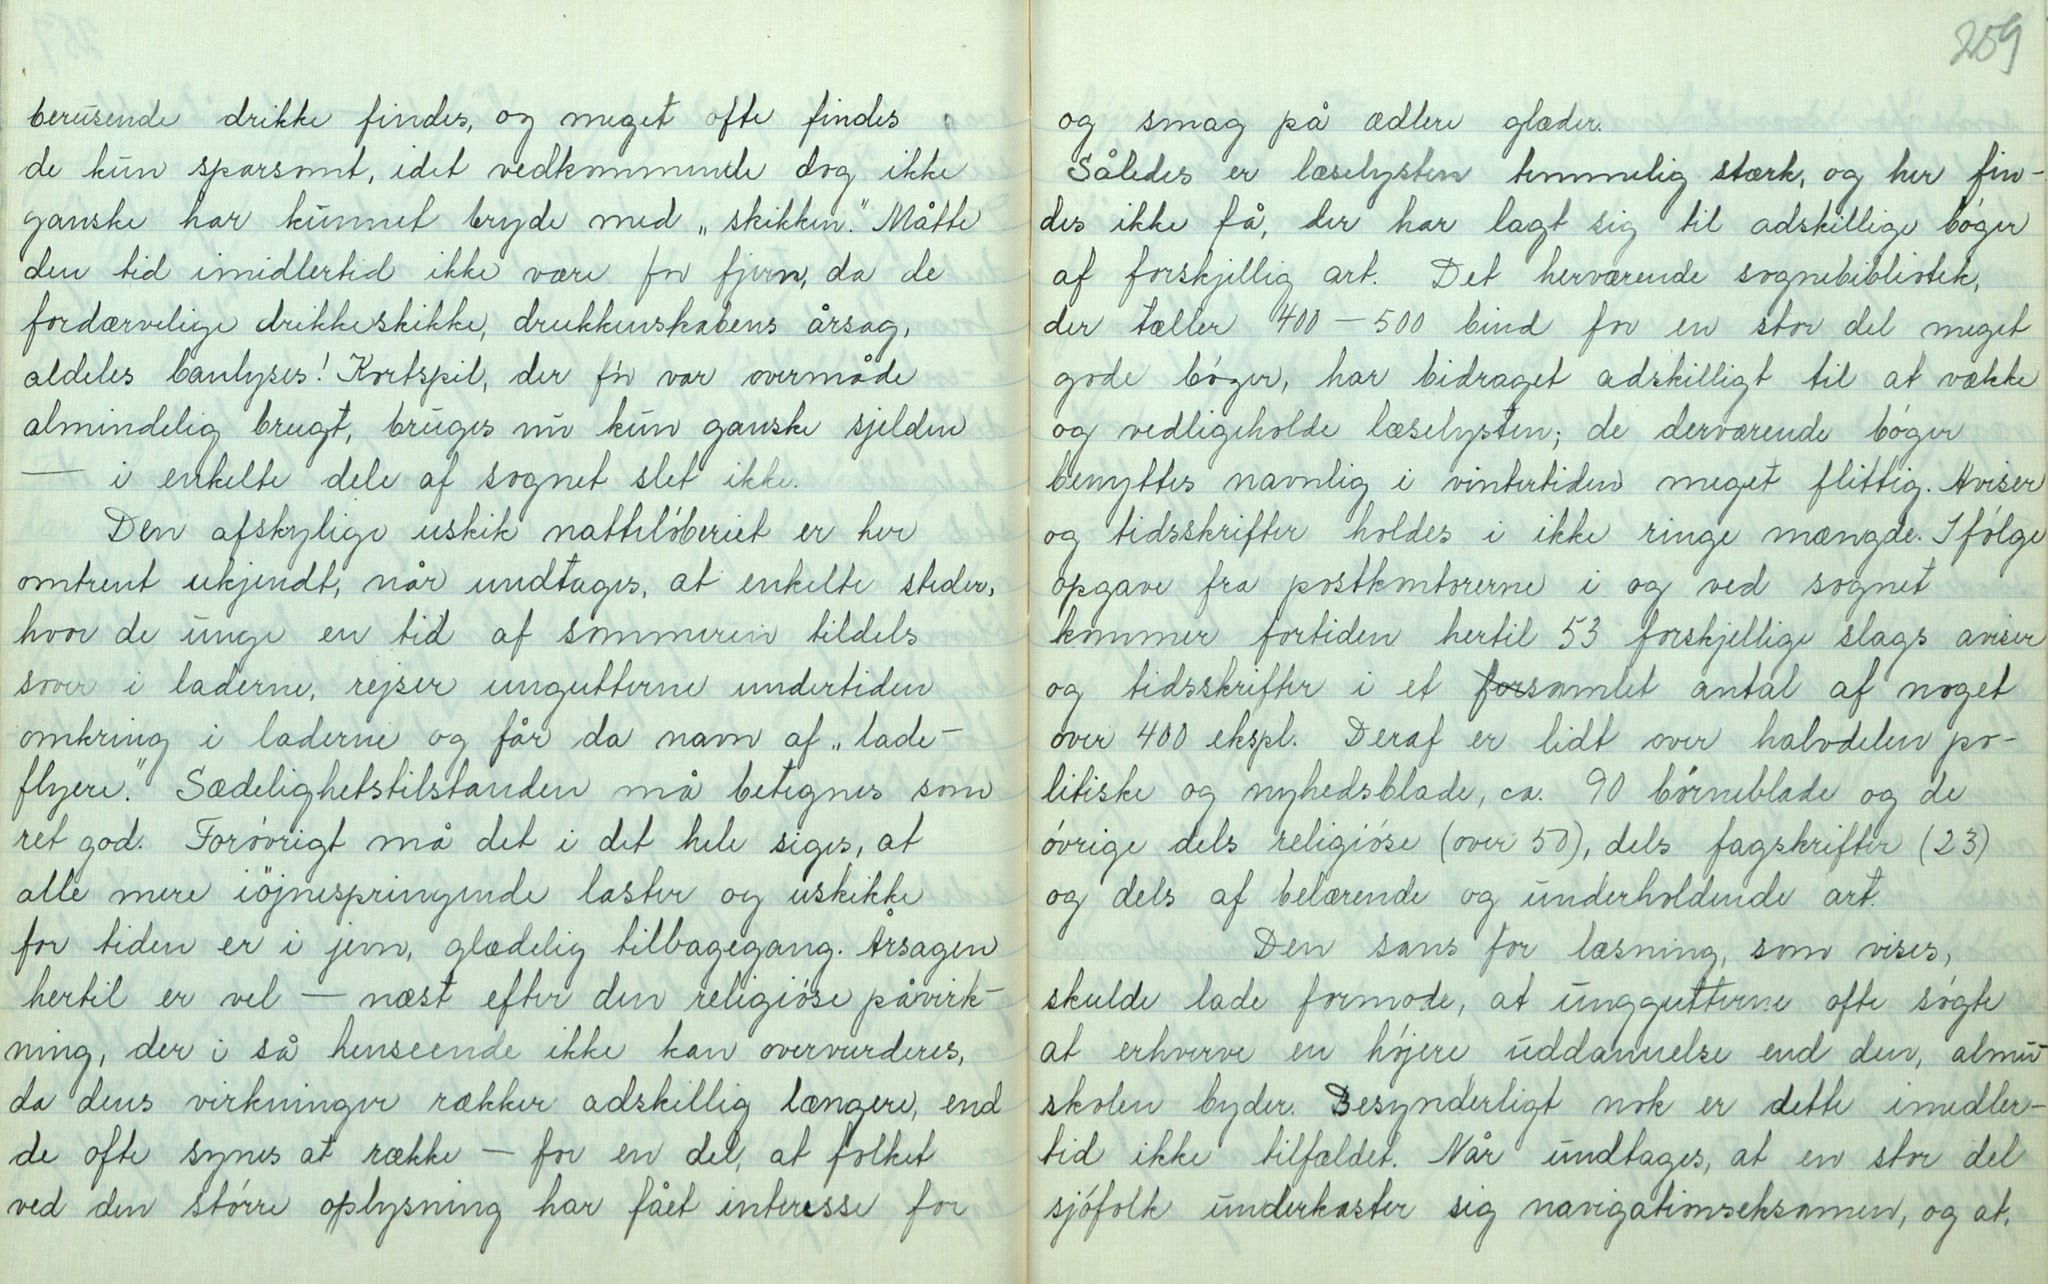 berusende drikke findes, og meget ofte findes
de kun sparsomt, idet vedkommende dog ikke
ganske har kunnet bryde med „skikken." Måtte
den tid imidlertid ikke være for fjern, da de
fordærvelige drikkeskikke, drukkenskabens årsag,
aldeles banlyses! Kortspil, der fór var overmåde
almindelig brugt, bruges nu kun ganske sjelden
— i enkelte dele af sognet slet ikke.
Den afskylige uskik natteløberiet er her
omtrent ukjendt, når undtages, at enkelte steder,
hvor de unge en tid af sommeren tildels
sover i laderne, rejser ungutterne undertiden
omkring i laderne og får da navn af „lade-
flyere." Sædelighetstilstanden må betegnes som
ret god. Forøvrigt må det i det hele siges, at
alle mere iöjnespringende laster og uskikke
for tiden er i jevn, glædelig tilbagegang. Årsagen
hertil er vel — næst efter den religióse påvirk-
ning, der i så henseende ikke kan overvurderes,
da dens virkninger rækker adskillig længere, end
de ofte synes at række — for en del, at folket
ved den större oplysning har fået interesse for
259
og smag på ædlere glæder.
Således er læselysten temmelig stærk, og her fin-
des ikke få, der har lagt sig til adskillige bóger
af forskjellig art. Det herværende sognebibliotek,
der tæller 400 — 500 bind for en stor del meget
gode bóger, har bidraget adskilligt til at vække
og vedligeholde læselysten; de derværende bóger
benyttes navnlig i vintertiden meget flittig. Aviser
og tidsskrifter holdes i ikke ringe mængde. Ifólge
opgave fra postkontorerne i og ved sognet
kommer fortiden hertil 53 forskjellige slags aviser
og tidsskrifter i et forsamlet antal af noget
over 400 ekspl. Deraf er lidt over halvdelen po-
litiske og nyhedsblade, ca. 90 bórneblade og de
óvrige dels religióse (over 50), dels fagskrifter (23)
og dels af belærende og underholdende art.
Den sans for læsning, som vises,
skulde lade formode, at unggutterne ofte sógte
at erhverve en hójere uddannelse end den, almu-
skolen byder. Besynderligt nok er dette imidler-
tid ikke tilfældet. Når undtages, at en stor del
sjófolk underkaster sig navigationseksamen, og at,